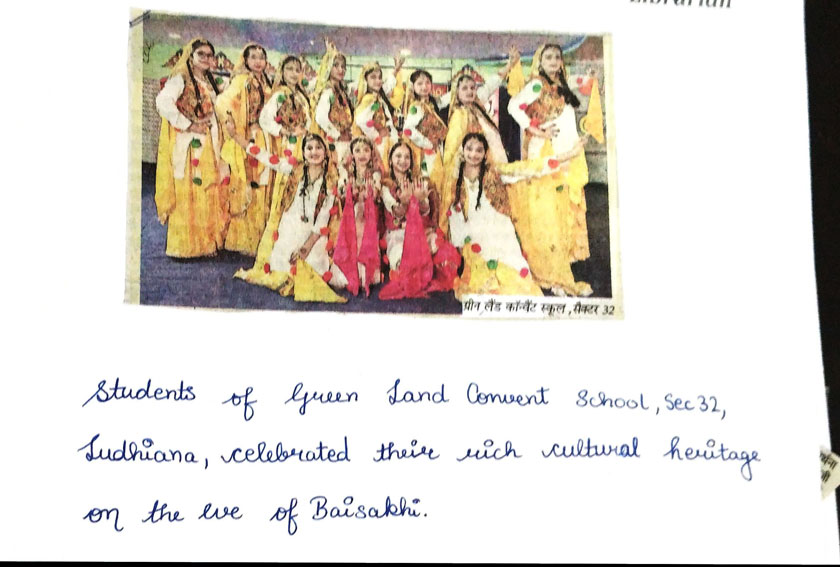 Librarian
ग्रीन लैंड कॉन्वैंट स्कूल, सैक्टर 32
Students of Green Land Convent School, Sec 32,
Ludhiana, celebrated their rich cultural heritage
on the eve of Baisakhi.